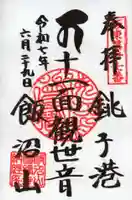 奉拝
銚子港
十一面観世音
令和七年
六月二十九日
飯沼山